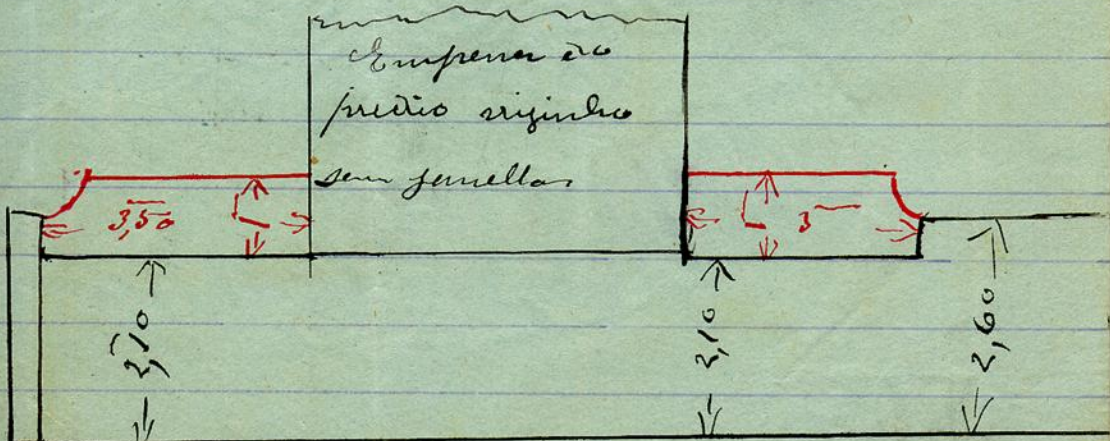 Empena do
predio visinho
sem janellas
3,50
1
1
3
2,10
2,10
2,60